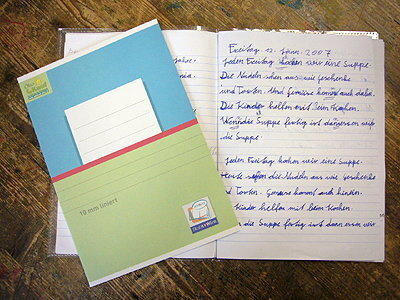 10 mm liniert
Freitag 12. Jänn. 2007
Jeden Freitag kochen wir eine Suppe.
Die Nudeln sehen aus wie Geschenke
und Torten. Und Gemüse kommt auch dabei.
Die Kinder helfen mit beim Kochen.
Wenn die Suppe fertig ist dan essen wir
die Suppe.
Jeden Freitag kochen wir eine Suppe.
Heute sehen die Nudeln aus wie Geschenke
und Torten. Gemüse kommt auch hinein.
Kinder helfen mit beim Kochen.
die Suppe fertig ist dann essen wir